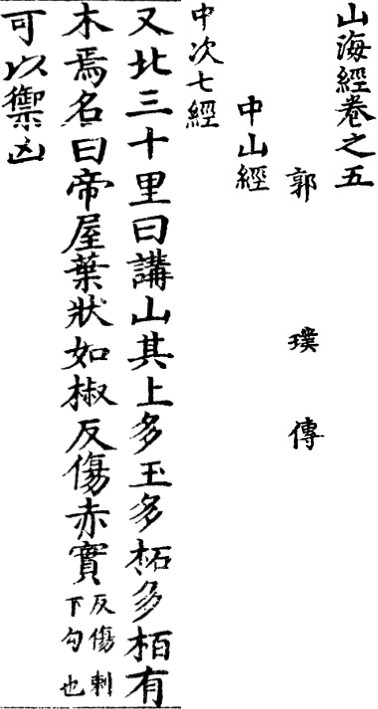 山海經卷之五
郭璞傳
中山經
中次七經
又北三十里曰講山其上多玉多柘多栢有
木焉名曰帝屋葉狀如椒反傷赤實反傷刺下勾也
可以禦凶